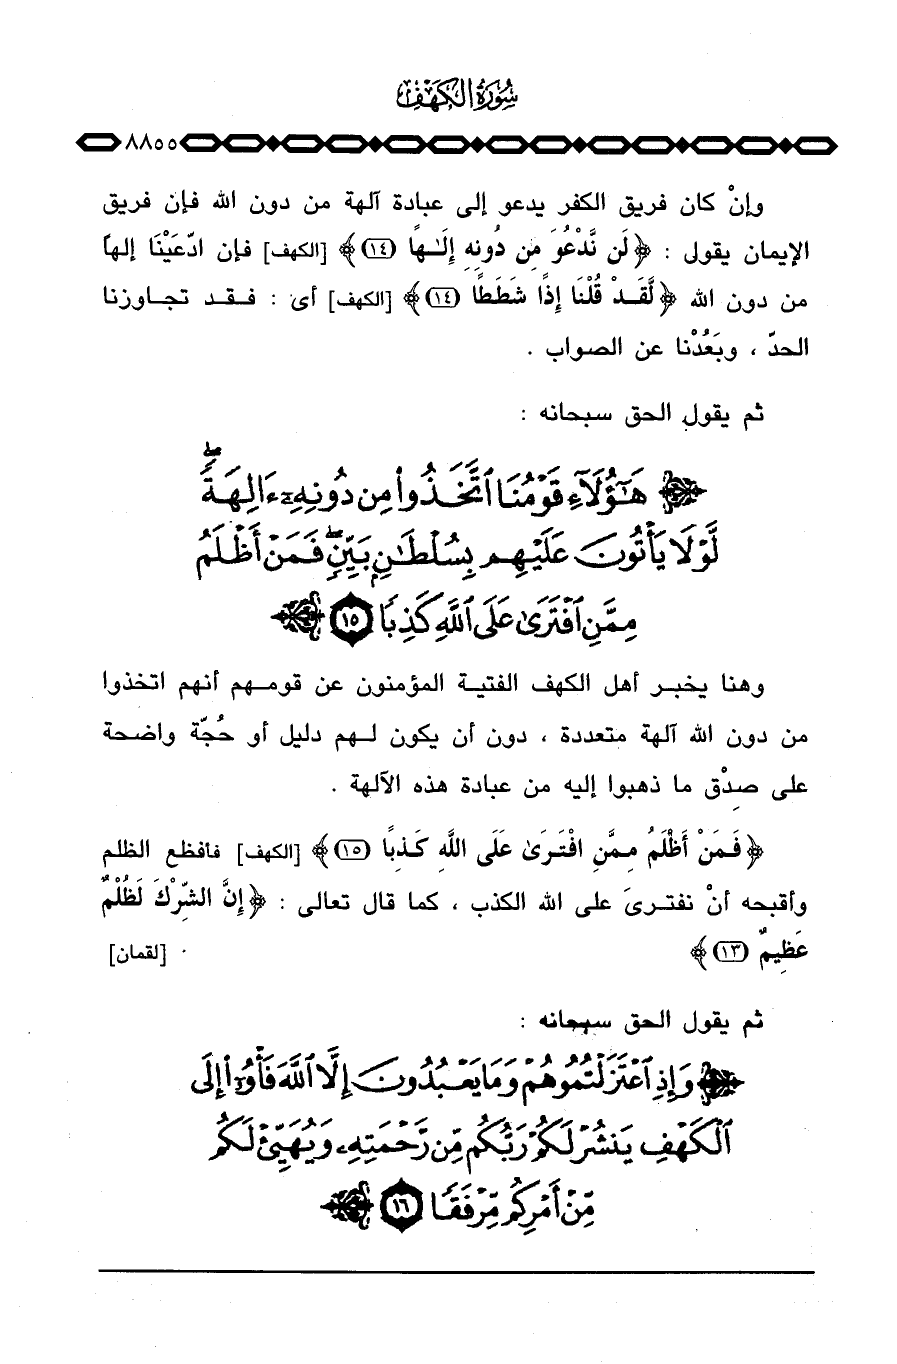 سُورَةُ الكَهْفِ
٨٨٥٥
وإنْ كان فريق الكفر يدعو إلى عبادة آلهة من دون الله فإن فريق
الإيمان يقول : ﴿لَن نَّدْعُوَ مِن دُونِهِ إِلَٰهاً (١٤)﴾ [الكهف] فإن ادّعَيْنَا إلهاً
من دون الله ﴿لَّقَدْ قُلْنَا إِذًا شَطَطًا (١٤)﴾ [الكهف] أى : فقد تجاوزنا
الحدّ ، وبَعُدْنا عن الصواب .
ثم يقول الحق سبحانه :
﴿هَٰٓؤُلَآءِ قَوْمُنَا ٱتَّخَذُوا۟ مِن دُونِهِۦٓ ءَالِهَةً ۖ
لَّوْلَا يَأْتُونَ عَلَيْهِم بِسُلْطَٰنٍۭ بَيِّنٍ ۖ فَمَنْ أَظْلَمُ
مِمَّنِ ٱفْتَرَىٰ عَلَى ٱللَّهِ كَذِبًا ١٥﴾
وهنا يخبر أهل الكهف الفتية المؤمنون عن قومهم أنهم اتخذوا
من دون الله آلهة متعددة ، دون أن يكون لهم دليل أو حُجّة واضحة
على صِدْق ما ذهبوا إليه من عبادة هذه الآلهة .
﴿فَمَنْ أَظْلَمُ مِمَّنِ افْتَرَىٰ عَلَى اللَّهِ كَذِبًا (١٥)﴾ [الكهف] فأفظع الظلم
وأقبحه أنْ نفترىَ على الله الكذب ، كما قال تعالى : ﴿إِنَّ الشِّرْكَ لَظُلْمٌ
عَظِيمٌ (١٣)﴾ [لقمان]
ثم يقول الحق سبحانه :
﴿وَإِذِ ٱعْتَزَلْتُمُوهُمْ وَمَا يَعْبُدُونَ إِلَّا ٱللَّهَ فَأْوُۥٓا۟ إِلَى
ٱلْكَهْفِ يَنشُرْ لَكُمْ رَبُّكُم مِّن رَّحْمَتِهِۦ وَيُهَيِّئْ لَكُم
مِّنْ أَمْرِكُم مِّرْفَقًا ١٦﴾